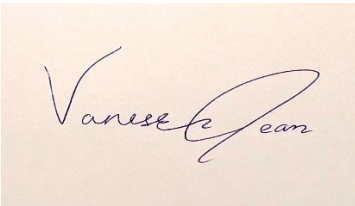 Vanessa Jean